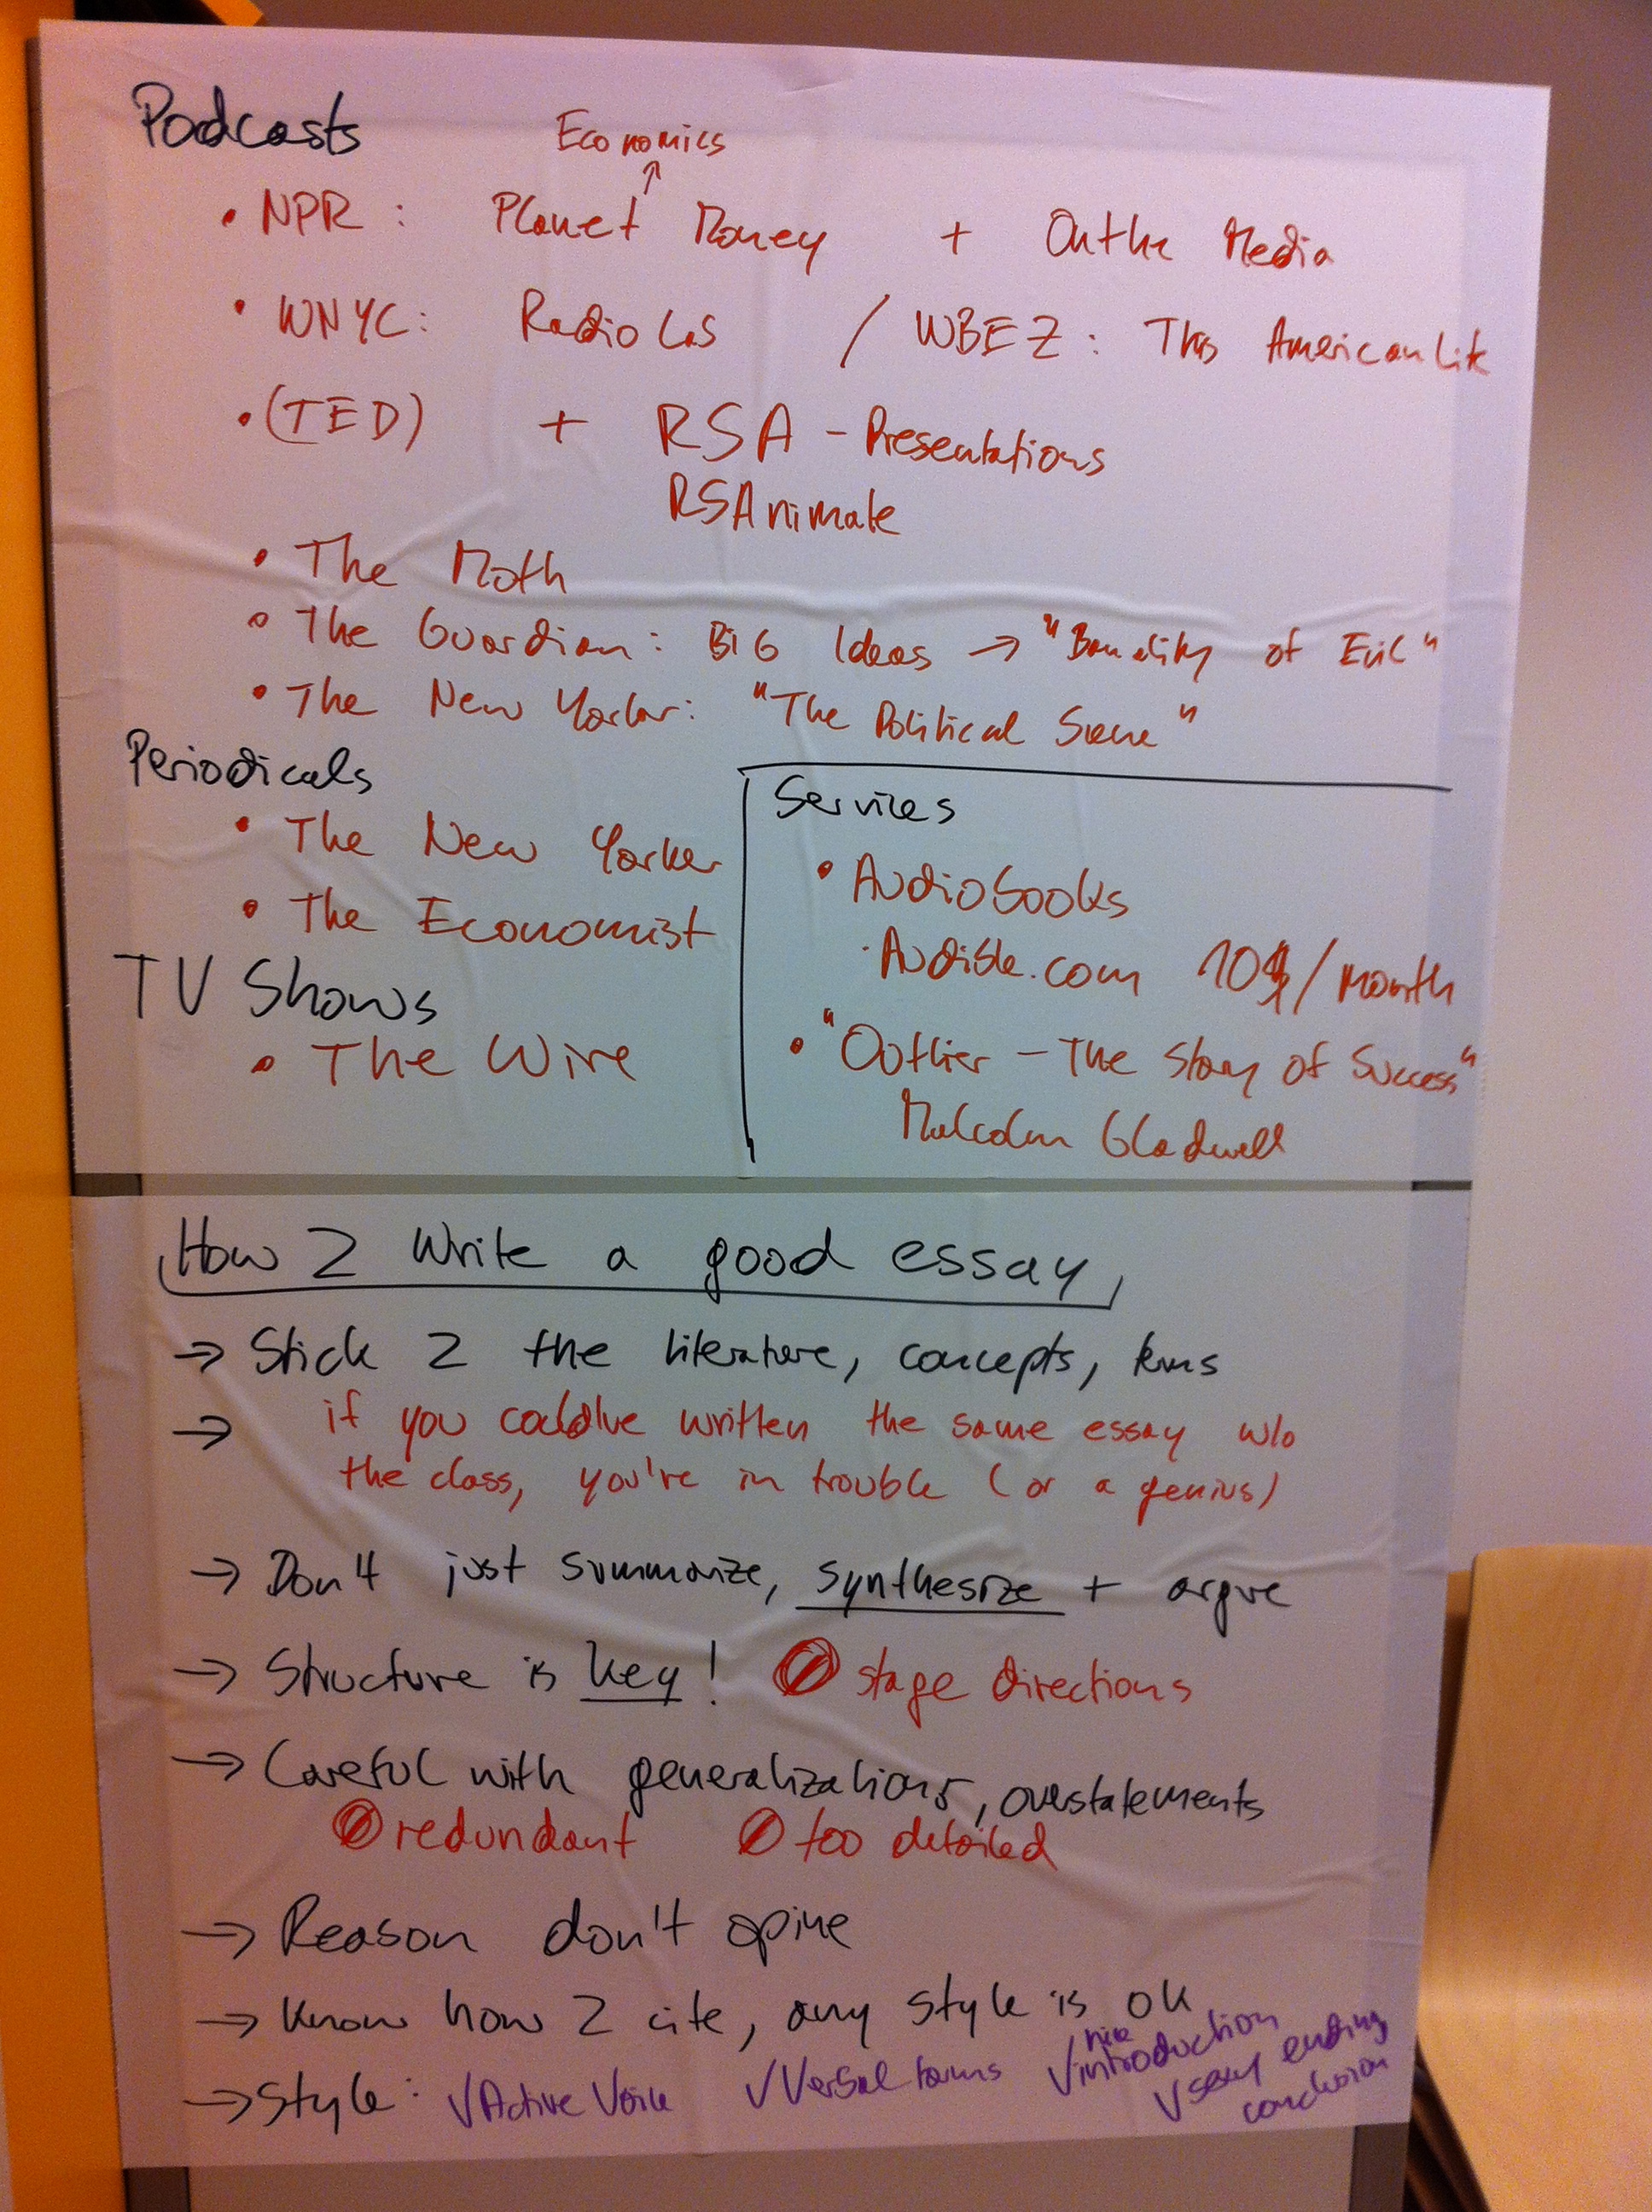 Podcasts
Economics
↑
• NPR : Planet Money + On the Media
• WNYC: Radio Lab / WBEZ : This American Life
• (TED) + RSA - Presentations
RSAnimate
• The Moth
• The Guardian: BIG Ideas → "Banality of Evil"
• The New Yorker: "The Political Scene"
Periodicals
• The New Yorker
• The Economist
TV Shows
• The Wire
Services
• Audiobooks
· Audible.com 10$/month
• "Outlier - The Story of Success"
Malcolm Gladwell
How 2 write a good essay
→ Stick 2 the literature, concepts, terms
→ if you could've written the same essay w/o
the class, you're in trouble (or a genius)
→ Don't just summarize, synthesize + argue
→ Structure is key! stage directions
→ Careful with generalizations, overstatements
redundant too detailed
→ Reason don't opine
→ Know how 2 cite, any style is ok
→ Style: √ Active Voice √ Verbal forms √ nice introduction
√ sexy ending
conclusion